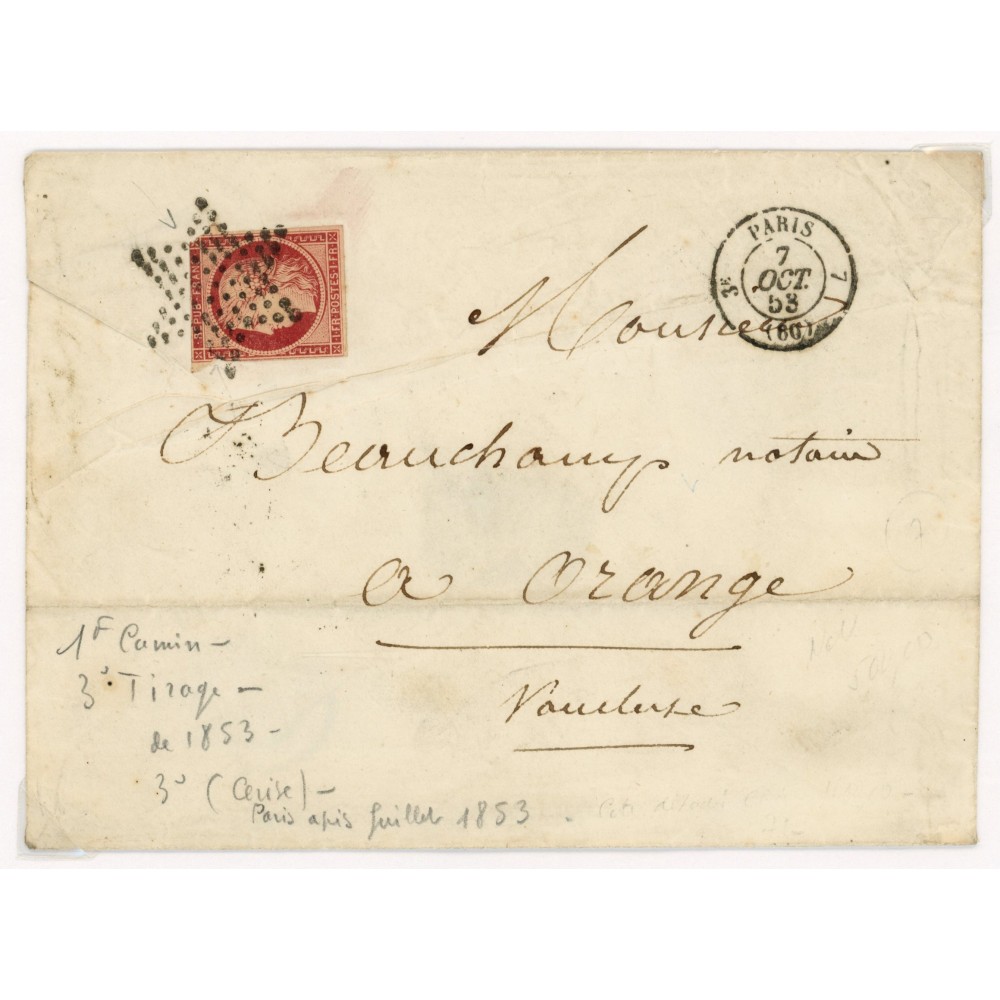 REPUB. FRANC
1.FR.POSTES.1.FR
PARIS
7
OCT.
53
(60)
3E
7
Monsieur
Beauchamp notaire
a Orange
Vaucluse
1F Carmin -
3e Tirage -
de 1853 -
3e (Cerise) -
Paris apis Juillet 1853 .